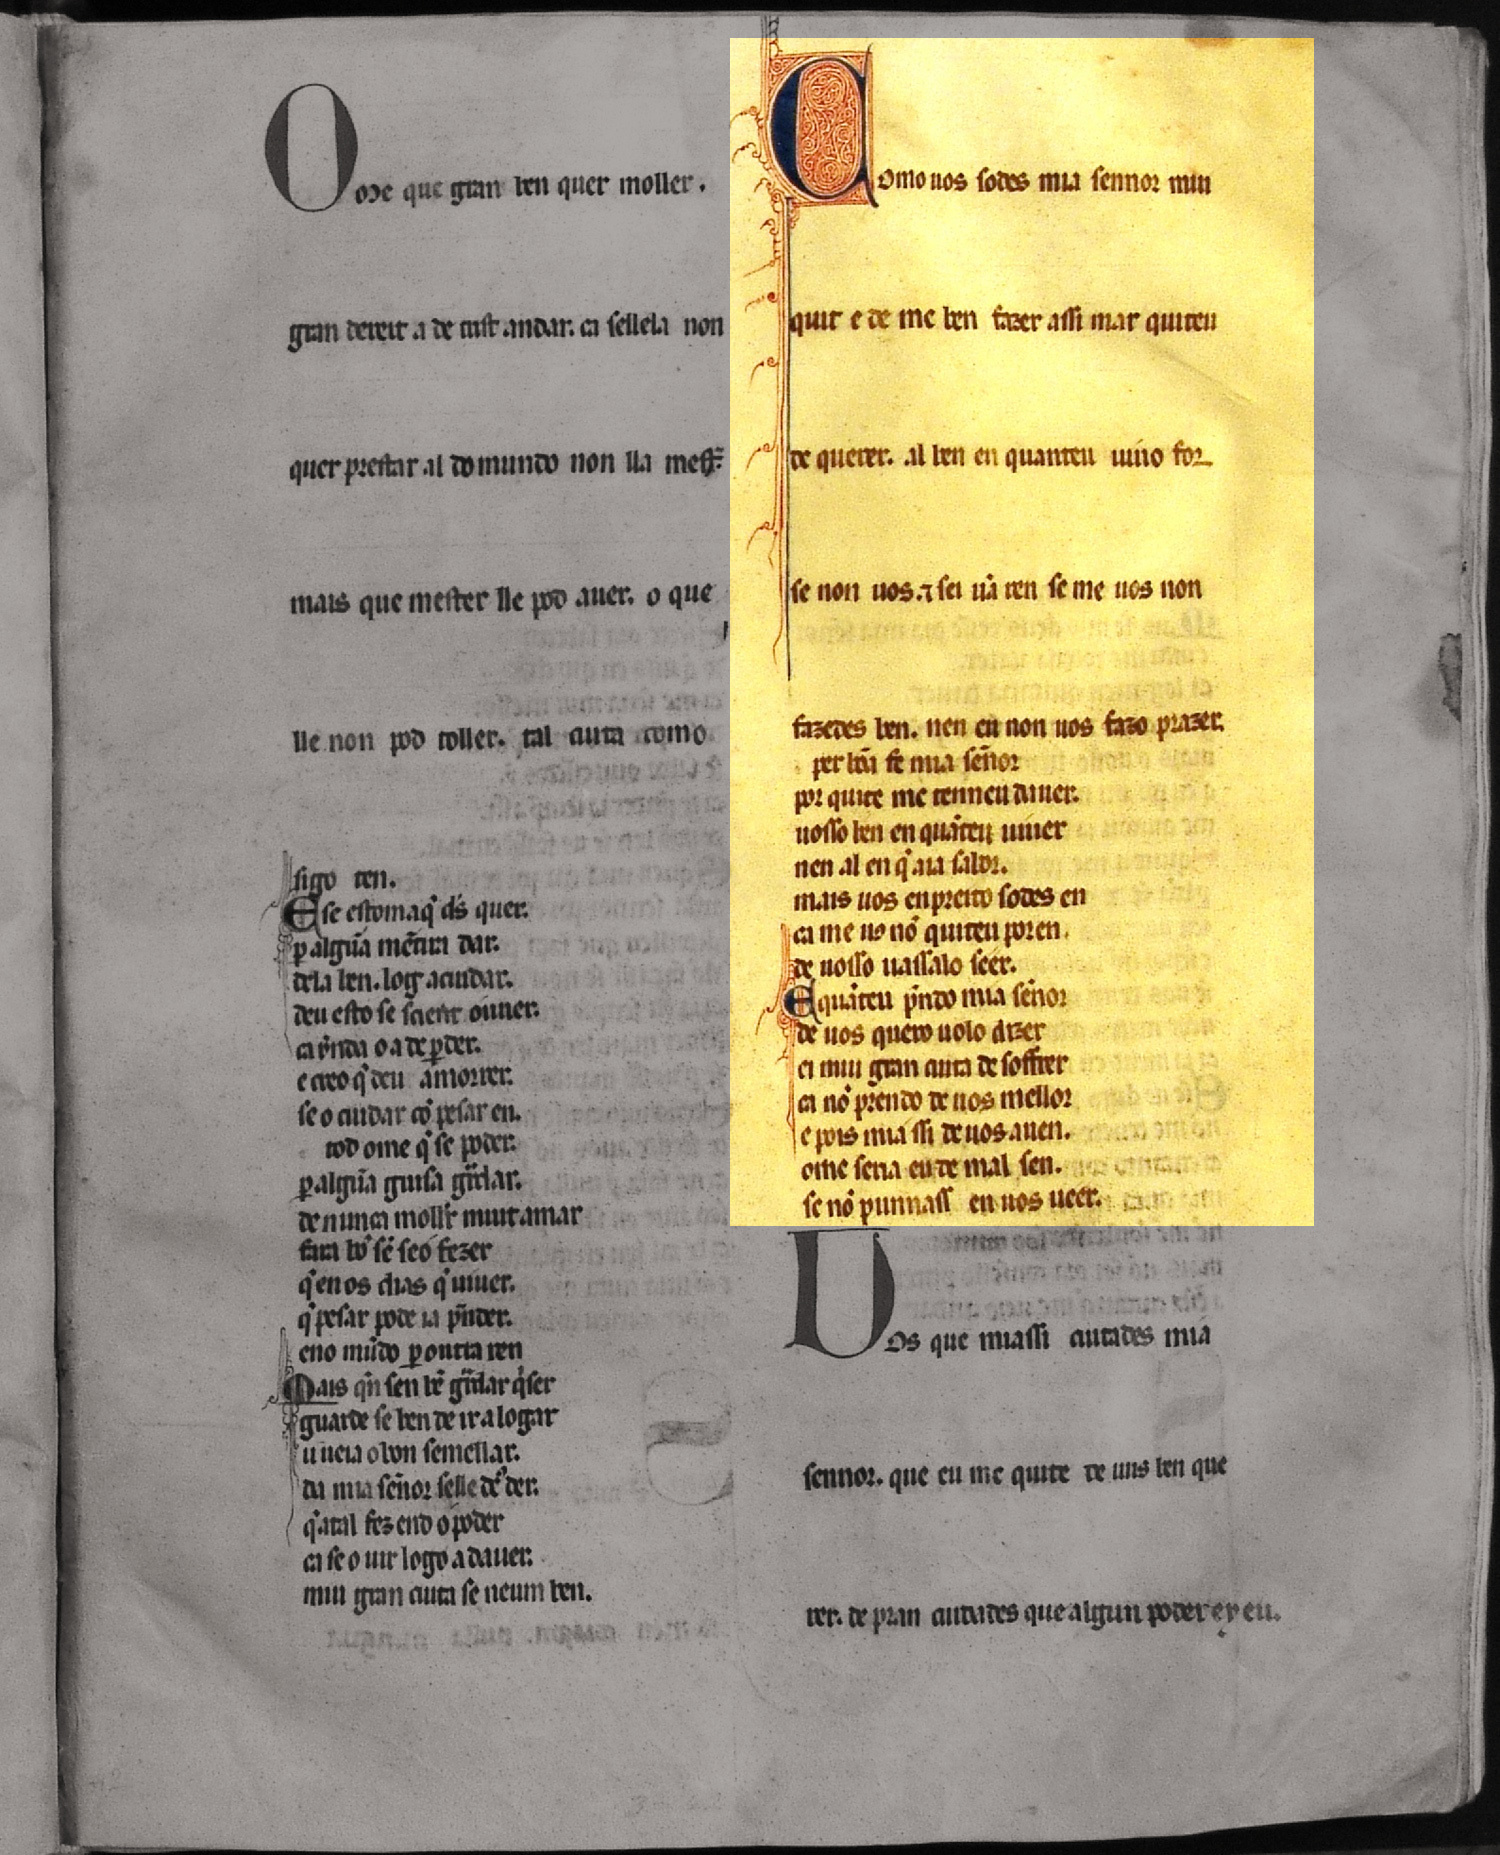 Ome que gran ben quer moller.
gran dereit a de trist andar. ca sellela non
quer prestar al do mundo non lla mest̃
mais que mester lle pod auer. o que
lle non pod toller. tal cuita como
sigo ten.
E se estomaq̃ d̃s quer.
ꝑ algũa mẽtira dar.
dela ben. log a cuidar.
deu esto se sci om̃er.
ca o a de ꝑder.
e creo q̃ deu a morrer.
se o cuidar cõ pesar en.
tod ome q̃ se poder.
ꝑ algũa guisa gr̃dar.
de nunca moller muit amar
fara bõ sẽ seo fezer
q̃ en os dias q̃ uiuer.
q̃ pesar pode ia p̃nder.
eno mũdo ꝑ outra ren
Mais q̃n sen bẽ gr̃dar q̃ser
guarde se ben de ir a logar
u ueia o bon semellar.
da mia señor selle d̃s der.
q̃ atal fez end o poder
ca se o uir logo a dauer.
mui gran cuita se neum ben.
Como uos sodes mia sennor mui
quit e de me ben fazer assi mar quiteu
de querer. al ben en quanteu uiuo for
se non uos. ⁊ sei ũa ren se me uos non
fazedes ben. nen eu non uos fazo prazer.
per bõa fe mia señor
por quite me tenneu dauer.
uosso ben en quãteu uiuer
nen al en q̃ aia sabor.
mais uos en preito sodes en
ca me uos nõ quiteu poren.
de uosso uassalo seer.
E quãteu p̃ndo mia señor
de uos quero uolo dizer
ei mui gran cuita de soffrer
ca nõ prendo de uos mellor
e pois mia ssi de uos auen.
ome seria eu de mal sen.
se nõ punnass en uos ueer.
Uos que miassi cuidades mia
sennor. que eu me quite de uos ben que
rer. de pran cuidades que algun poder ey eu.